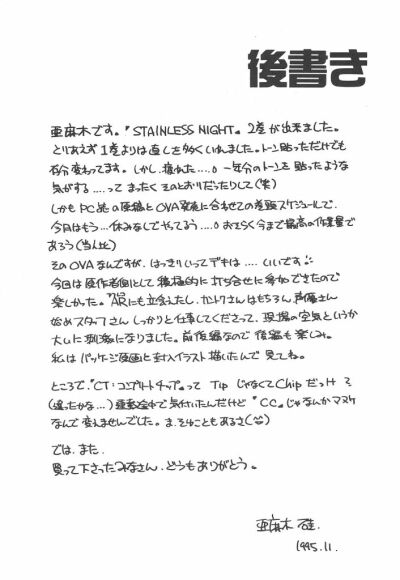 後書き
亜麻木です。『STAINLESS NIGHT』2巻が出来ました。
とりあえず1巻よりは直しを多くいれました。トーン貼っただけでも
随分変わってます。しかし、疲れた....。一年分のトーンを貼ったような
気がする....って まったく そのとおりだったりして(笑)
しかも PC版の原稿とOVA発売に合わせての差販スケジュールで、
今月はもう...休みなしでやってる....。おそらく今まで最高の作業量で
あろう(当人比)
そのOVAなんですが、はっきりいってデキは....いいです。
今回は原作者側として積極的に打ち合せに参加できたので
楽しかった。ARにも立会えたし、カントクさんはもちろん、声優さん
始めスタッフさん しっかりと仕事してくださって、現場の空気というか
大いに刺激になりました。前後編なので 後編も楽しみ。
私は パッケージ原画と封入イラスト描いたんで 見てね。
ところで、"CT:コンプリートチップ"って Tip じゃなくてChip だっけ?
(違ったかな...) 運動会中で気付いたんだけど "CC"じゃなんかマヌケ
なんで 変えませんでした。ま、そゆこともあるさ
では、また
買って下さったみなさん、どうもありがとう。
亜麻木 硅
1995.11.